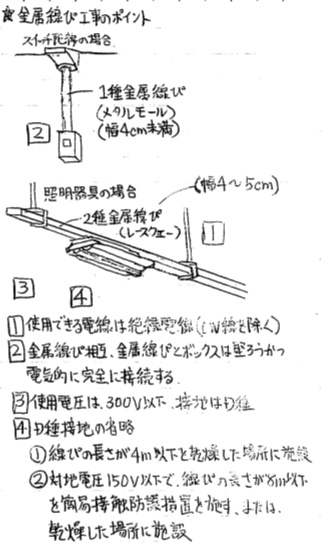 金属線ぴ工事のポイント
スイッチ配線の場合
1種金属線ぴ
(メタルモール)
(幅4cm未満)
2
照明器具の場合
(幅4〜5cm)
2種金属線ぴ
(レースウェー)
1
3
4
1 使用できる電線は絶縁電線(OW線を除く)
2 金属線ぴ相互、金属線ぴとボックスは堅ろうかつ
電気的に完全に接続する
3 使用電圧は、300V以下、接地はD種
4 D種接地の省略
①線ぴの長さが4m以下と乾燥した場所に施設
②対地電圧150V以下で、線ぴの長さが8m以下
を簡易接触防護措置を施す、または、
乾燥した場所に施設